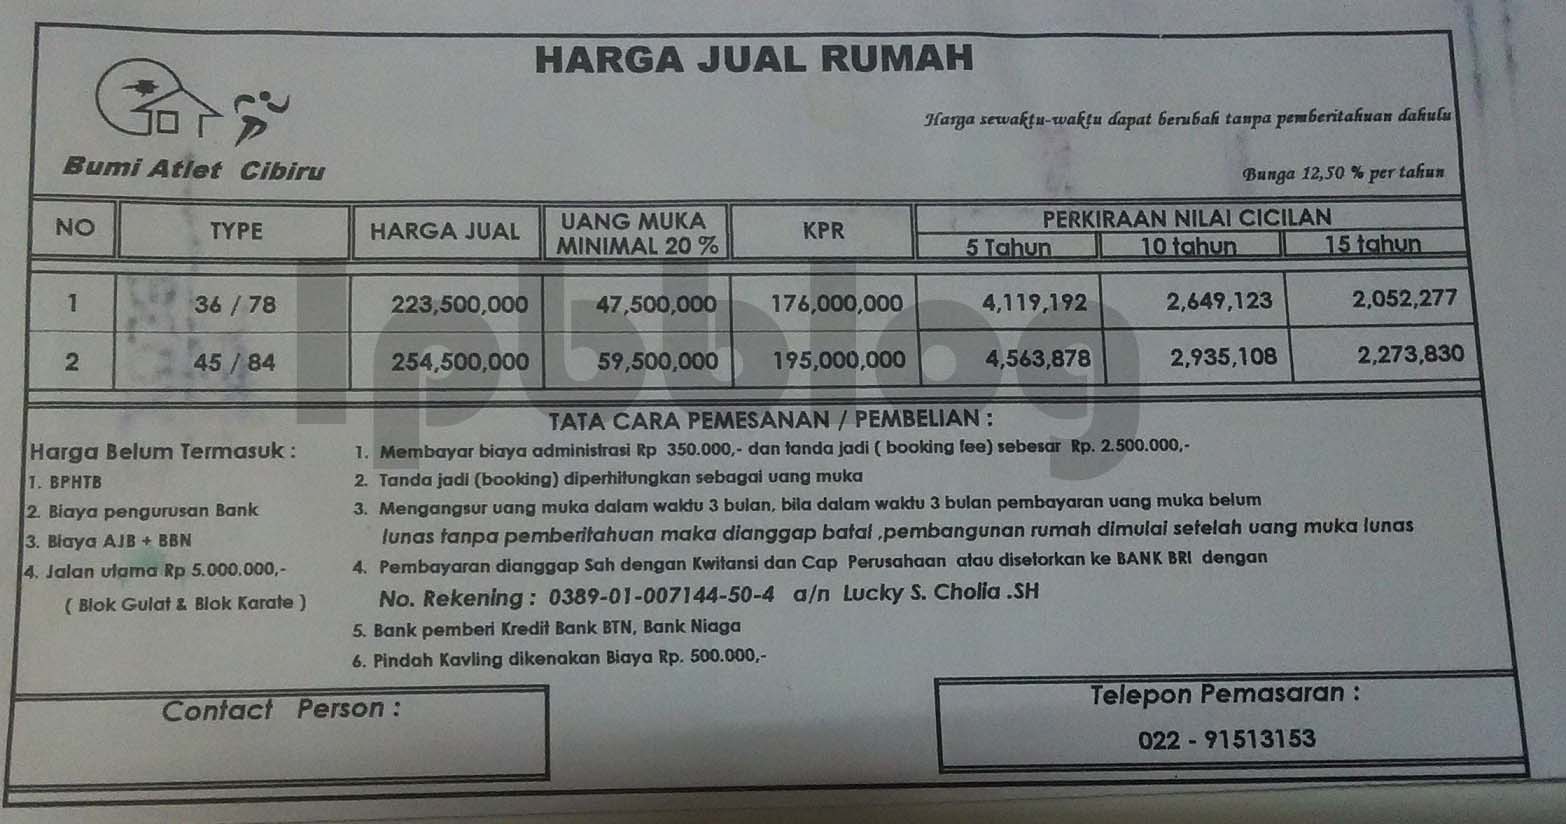 HARGA JUAL RUMAH
Harga sewaktu-waktu dapat berubah tanpa pemberitahuan dahulu
Bumi Atlet Cibiru
Bunga 12,50 % per tahun
NO TYPE HARGA JUAL UANG MUKA MINIMAL 20 % KPR PERKIRAAN NILAI CICILAN
5 Tahun 10 tahun 15 tahun
1 36 / 78 223,500,000 47,500,000 176,000,000 4,119,192 2,649,123 2,052,277
2 45 / 84 254,500,000 59,500,000 195,000,000 4,563,878 2,935,108 2,273,830
lpbblog
TATA CARA PEMESANAN / PEMBELIAN :
Harga Belum Termasuk :
1. BPHTB
2. Biaya pengurusan Bank
3. Biaya AJB + BBN
4. Jalan utama Rp 5.000.000,-
( Blok Gulat & Blok Karate )
1. Membayar biaya administrasi Rp 350.000,- dan tanda jadi ( booking fee) sebesar Rp. 2.500.000,-
2. Tanda jadi (booking) diperhitungkan sebagai uang muka
3. Mengangsur uang muka dalam waktu 3 bulan, bila dalam waktu 3 bulan pembayaran uang muka belum
lunas tanpa pemberitahuan maka dianggap batal ,pembangunan rumah dimulai setelah uang muka lunas
4. Pembayaran dianggap Sah dengan Kwitansi dan Cap Perusahaan atau disetorkan ke BANK BRI dengan
No. Rekening : 0389-01-007144-50-4 a/n Lucky S. Cholia .SH
5. Bank pemberi Kredit Bank BTN, Bank Niaga
6. Pindah Kavling dikenakan Biaya Rp. 500.000,-
Contact Person :
Telepon Pemasaran :
022 - 91513153